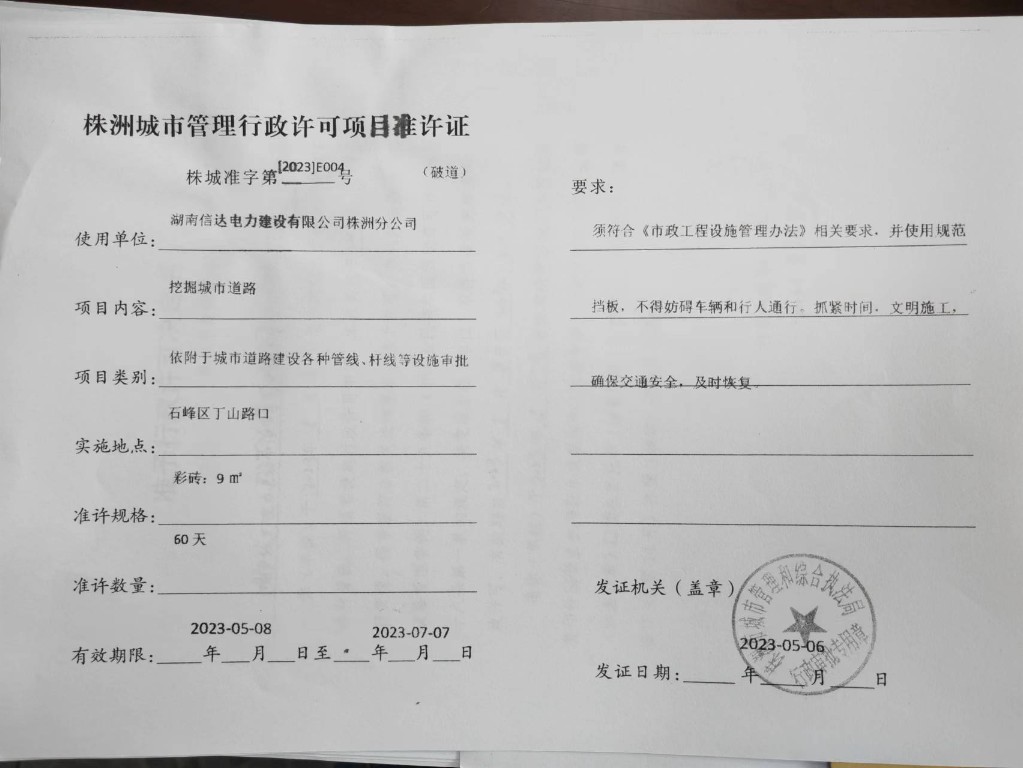 株洲城市管理行政许可项目准许证
株城准字第[2023]E004号 （破道）
使用单位：湖南信达电力建设有限公司株洲分公司
项目内容：挖掘城市道路
项目类别：依附于城市道路建设各种管线、杆线等设施审批
实施地点：石峰区丁山路口
准许规格：彩砖：9㎡
准许数量：60天
2023-05-08 2023-07-07
有效期限：____年___月___日至____年___月___日
要求：
须符合《市政工程设施管理办法》相关要求，并使用规范
挡板，不得妨碍车辆和行人通行。抓紧时间，文明施工，
确保交通安全，及时恢复。
发证机关（盖章）
株洲市城市管理和综合执法局
行政审批专用章
2023-05-06
发证日期：_____年____月____日